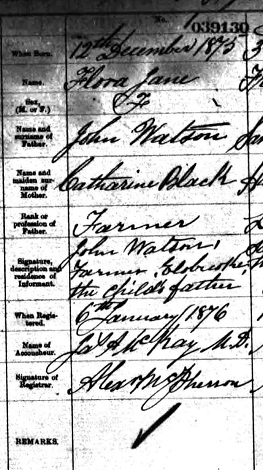 No. 039130
When Born. 12th December 1875
Name. Flora Jane
Sex, (M. or F.) F
Name and surname of Father. John Watson
Name and maiden surname of Mother. Catharine Black
Rank or profession of Father. Farmer
Signature, description and residence of Informant. John Watson,
Farmer,
the child's father
When Registered. 6th January 1876
Name of Accoucheur. McKay M.D.
Signature of Registrar. Alex McPherson
REMARKS.